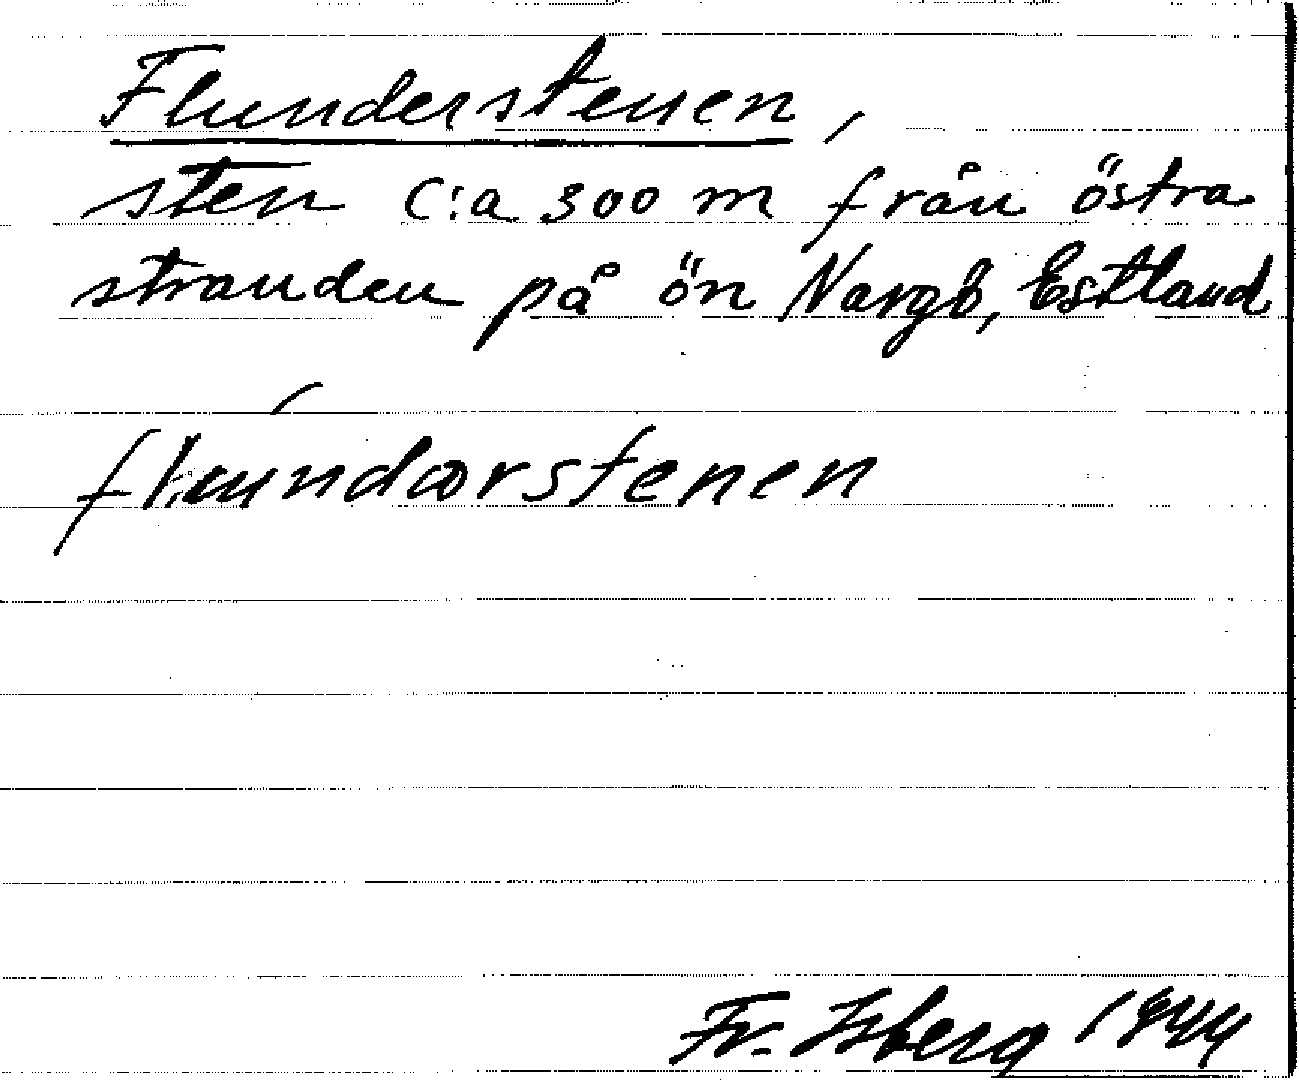 Flunderstenen,
sten c:a 300 m från östra
stranden på ön Nargö, Estland
flúndærstenen
Fr. Isberg 1944